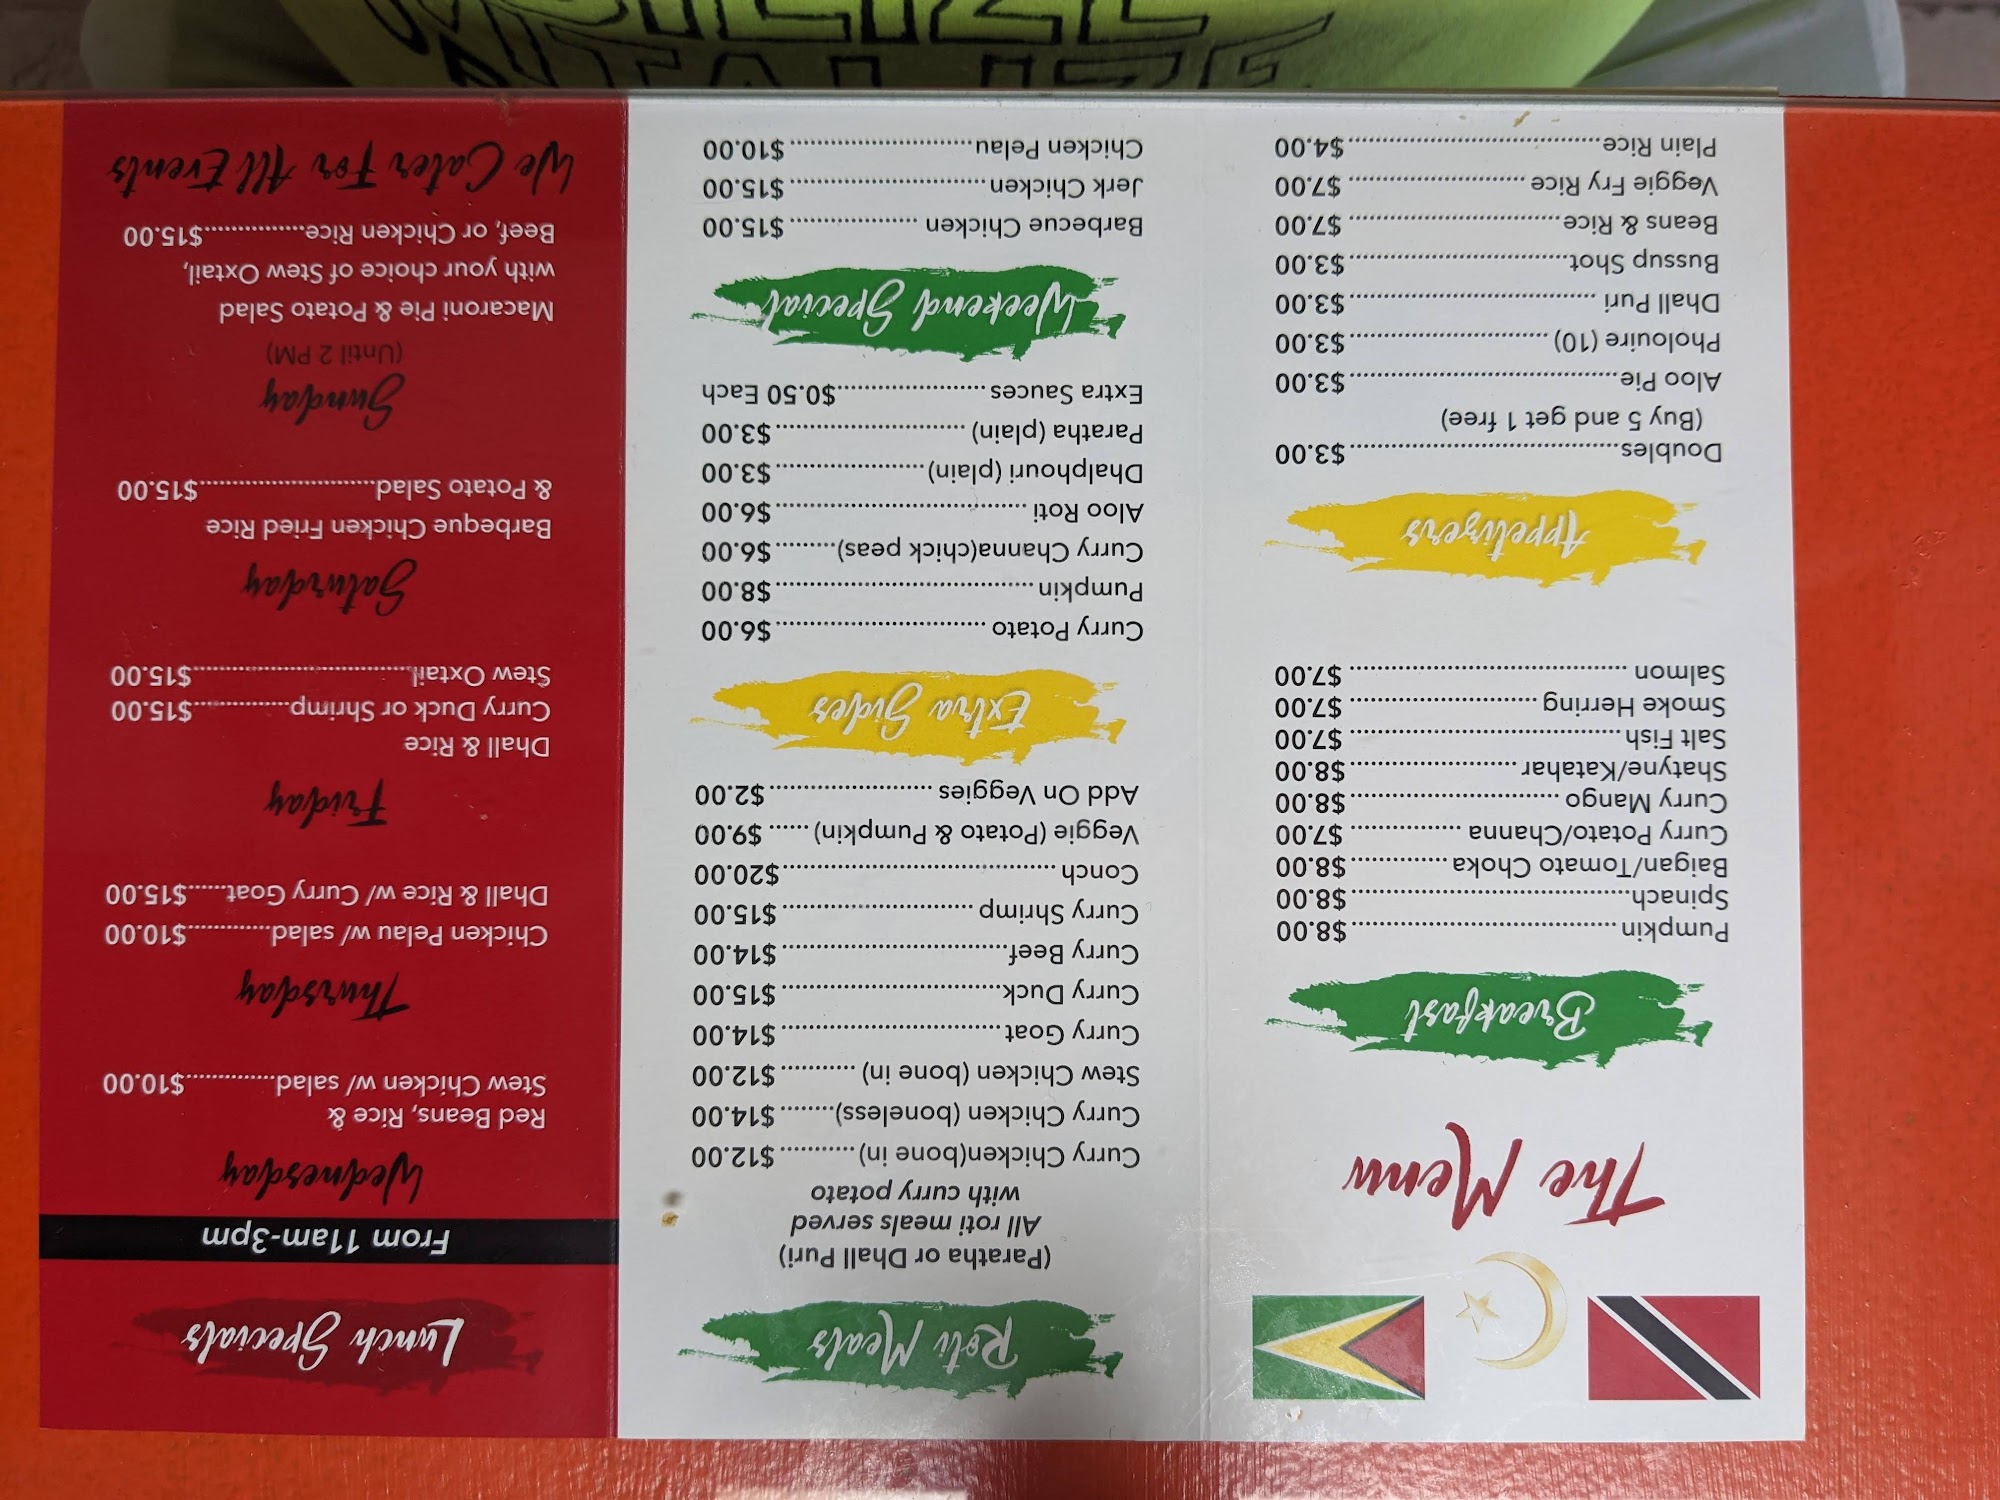 The Menu
Breakfast
Pumpkin........................................$8.00
Spinach........................................$8.00
Baigan/Tomato Choka..............$8.00
Curry Potato/Channa................$7.00
Curry Mango............................$8.00
Shatyne/Katahar........................$8.00
Salt Fish.......................................$7.00
Smoke Herring...........................$7.00
Salmon........................................$7.00
Appetizers
Doubles.......................................$3.00
(Buy 5 and get 1 free)
Aloo Pie.......................................$3.00
Pholouire (10)............................$3.00
Dhall Puri....................................$3.00
Bussup Shot................................$3.00
Beans & Rice...............................$7.00
Veggie Fry Rice..........................$7.00
Plain Rice....................................$4.00
Roti Meals
(Paratha or Dhall Puri)
All roti meals served
with curry potato
Curry Chicken(bone in)...........$12.00
Curry Chicken (boneless)........$14.00
Stew Chicken (bone in)...........$12.00
Curry Goat................................$14.00
Curry Duck................................$15.00
Curry Beef.................................$14.00
Curry Shrimp............................$15.00
Conch........................................$20.00
Veggie (Potato & Pumpkin)......$9.00
Add On Veggies........................$2.00
Extra Sides
Curry Potato..............................$6.00
Pumpkin.....................................$8.00
Curry Channa(chick peas).........$6.00
Aloo Roti....................................$6.00
Dhalphouri (plain)......................$3.00
Paratha (plain)...........................$3.00
Extra Sauces......................$0.50 Each
Weekend Special
Barbecue Chicken...................$15.00
Jerk Chicken.............................$15.00
Chicken Pelau...........................$10.00
Lunch Specials
From 11am-3pm
Wednesday
Red Beans, Rice &
Stew Chicken w/ salad..............$10.00
Thursday
Chicken Pelau w/ salad.............$10.00
Dhall & Rice w/ Curry Goat......$15.00
Friday
Dhall & Rice
Curry Duck or Shrimp...............$15.00
Stew Oxtail..................................$15.00
Saturday
Barbeque Chicken Fried Rice
& Potato Salad............................$15.00
Sunday
(Until 2 PM)
Macaroni Pie & Potato Salad
with your choice of Stew Oxtail,
Beef, or Chicken Rice................$15.00
We Cater For All Events